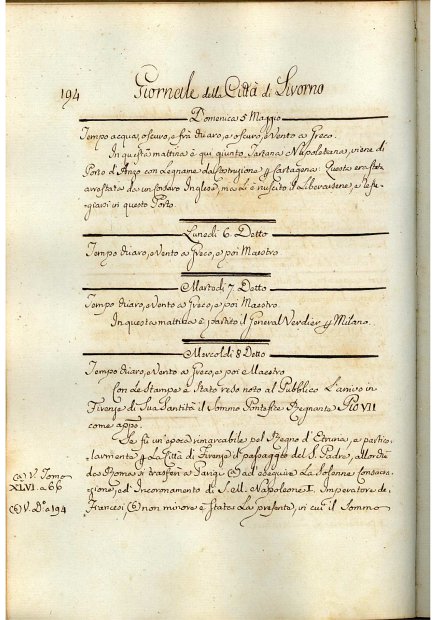 194
Giornale della Città di Livorno
Domenica 5 Maggio
Tempo acqua, oscuro, e frà chiaro, e oscuro, e Vento a Greco.
In questa mattina è qui giunto Tartana Napoletana, viene di
Porto d'Anzo con Legname da Costruzione p Cartagena. Questa era stata
arrestata da un Corsaro Inglese, ma li è riuscito di liberarsene, e refu-
giarsi in questo Porto.
Lunedì 6. Detto
Tempo chiaro, e Vento a Greco, e poi Maestro.
Martedì 7. Detto
Tempo chiaro, e Vento a Greco, e poi Maestro.
In questa mattina è partito il General Verdier p Milano.
Mercoldì 8 Detto
Tempo chiaro, e Vento a Greco, e poi Maestro
Con le Stampe è Stato reso noto al Pubblico L'arrivo in
Firenze di Sua Santità il Sommo Pontefice Regnante Pio VII
come appo.
Se fù un'epoca rimarcabile pel Regno d'Etruria, e partico-
larmente p La Città di Firenze il passaggio del S. Padre, allorchè
da Roma si trasferì a Parigi (a) ad eseguire La Solenne Consacra-
zione, ed' Incoronamento di S. M. Napoleone I. Imperatore de
Francesi (b) non minore è Stata La presente, in cui il Sommo
(a) V. Tomo
XLVI. a 66
(b) V. Dº a 194